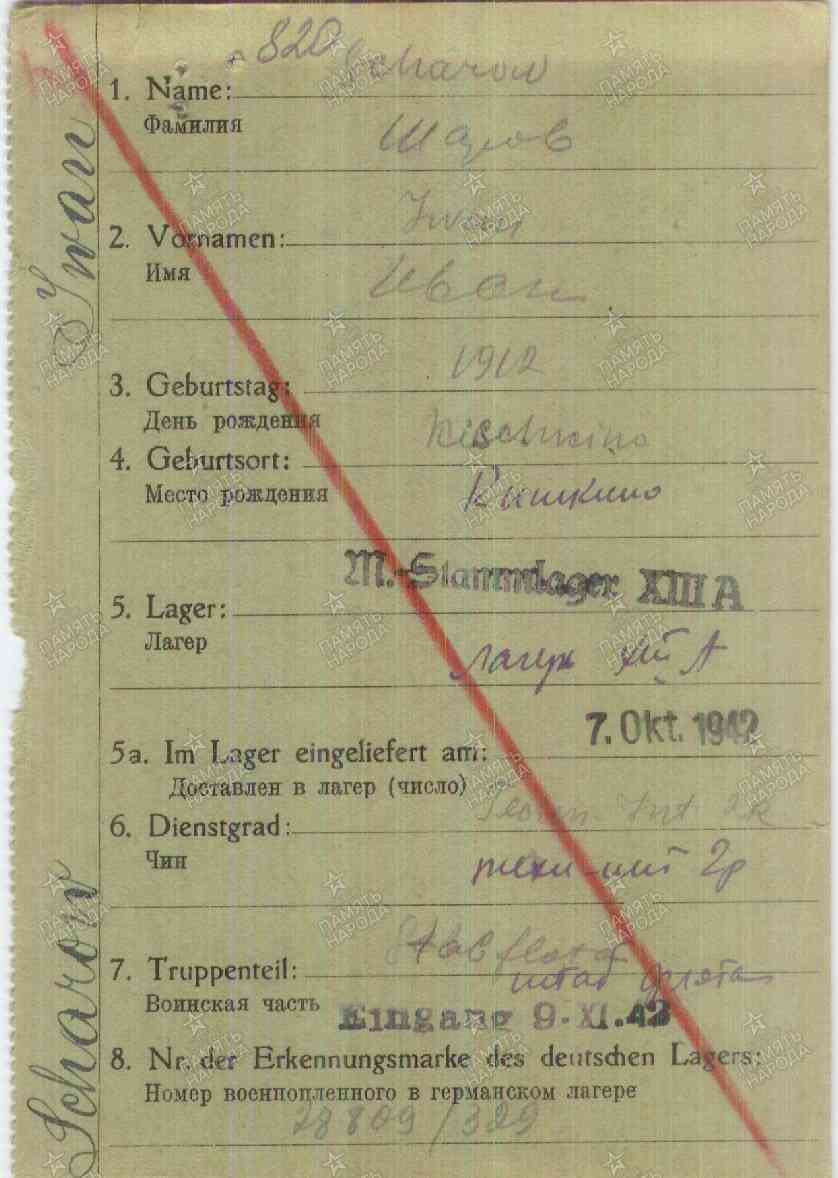 820
Scharow
1. Name:
Фамилия
Шаров
Iwan
2. Vornamen:
Имя
Иван
1912
3. Geburtstag:
День рождения
Kischkino
4. Geburtsort:
Место рождения
Кишкино
M.-Stammlager XIII A
5. Lager:
Лагер
лагерь XIII A
7. Okt. 1942
5a. Im Lager eingeliefert am:
Доставлен в лагер (число)
Techn. Int. 2R
6. Dienstgrad:
Чин
техн-инт 2р
Stab flota
7. Truppenteil:
штаб флота
Воинская часть
Eingang 9. XI. 42
8. Nr. der Erkennungsmarke des deutschen Lagers:
Номер военнопленного в германском лагере
28809/329
Scharow Iwan
ПАМЯТЬ НАРОДА